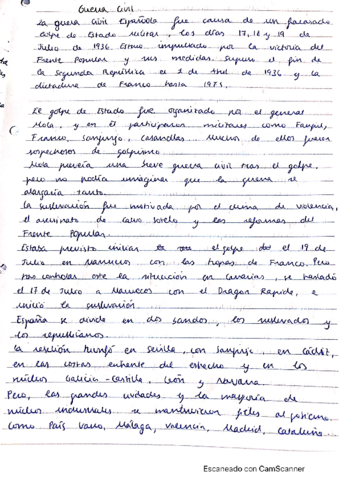 Guerra Civil
La guerra Civil Española fue causa de un fracasado
Golpe de Estado militar, los días 17, 18 y 19 de
Julio de 1936. Estuvo impulsado por la victoria del
Frente Popular y sus medidas. Supuso el fin de
la Segunda República el 1 de Abril de 1936 y la
dictadura de Franco hasta 1975.
El golpe de Estado fue organizado por el general
Mola, y en él participaron militares como Fanjul,
Franco, Sanjurjo, Cabanellas. Muchos de ellos fueron
sospechosos de golpismo.
Mola preveía una breve guerra civil tras el golpe,
pero no podía imaginar que la guerra se
alargaría tanto.
La sublevación fue motivada por el clima de violencia,
el asesinato de Calvo Sotelo y las reformas del
Frente Popular.
Estaba previsto iniciar el golpe el 19 de
Julio en Marruecos con las tropas de Franco. Pero
tras controlar este la situación en Canarias, se trasladó
el 17 de Julio a Marruecos con el Dragon Rapide, e
inició la sublevación.
España se divide en dos bandos, los sublevados y
los republicanos.
La rebelión triunfó en Sevilla, con Sanjurjo, en Cádiz,
en las costas enfrente del estrecho y en los
núcleos Galicia-Castilla, León y Navarra.
Pero, las grandes ciudades y la mayoría de
núcleos industriales se mantuvieron fieles al gobierno
como País Vasco, Málaga, Valencia, Madrid, Cataluña
Escaneado con CamScanner